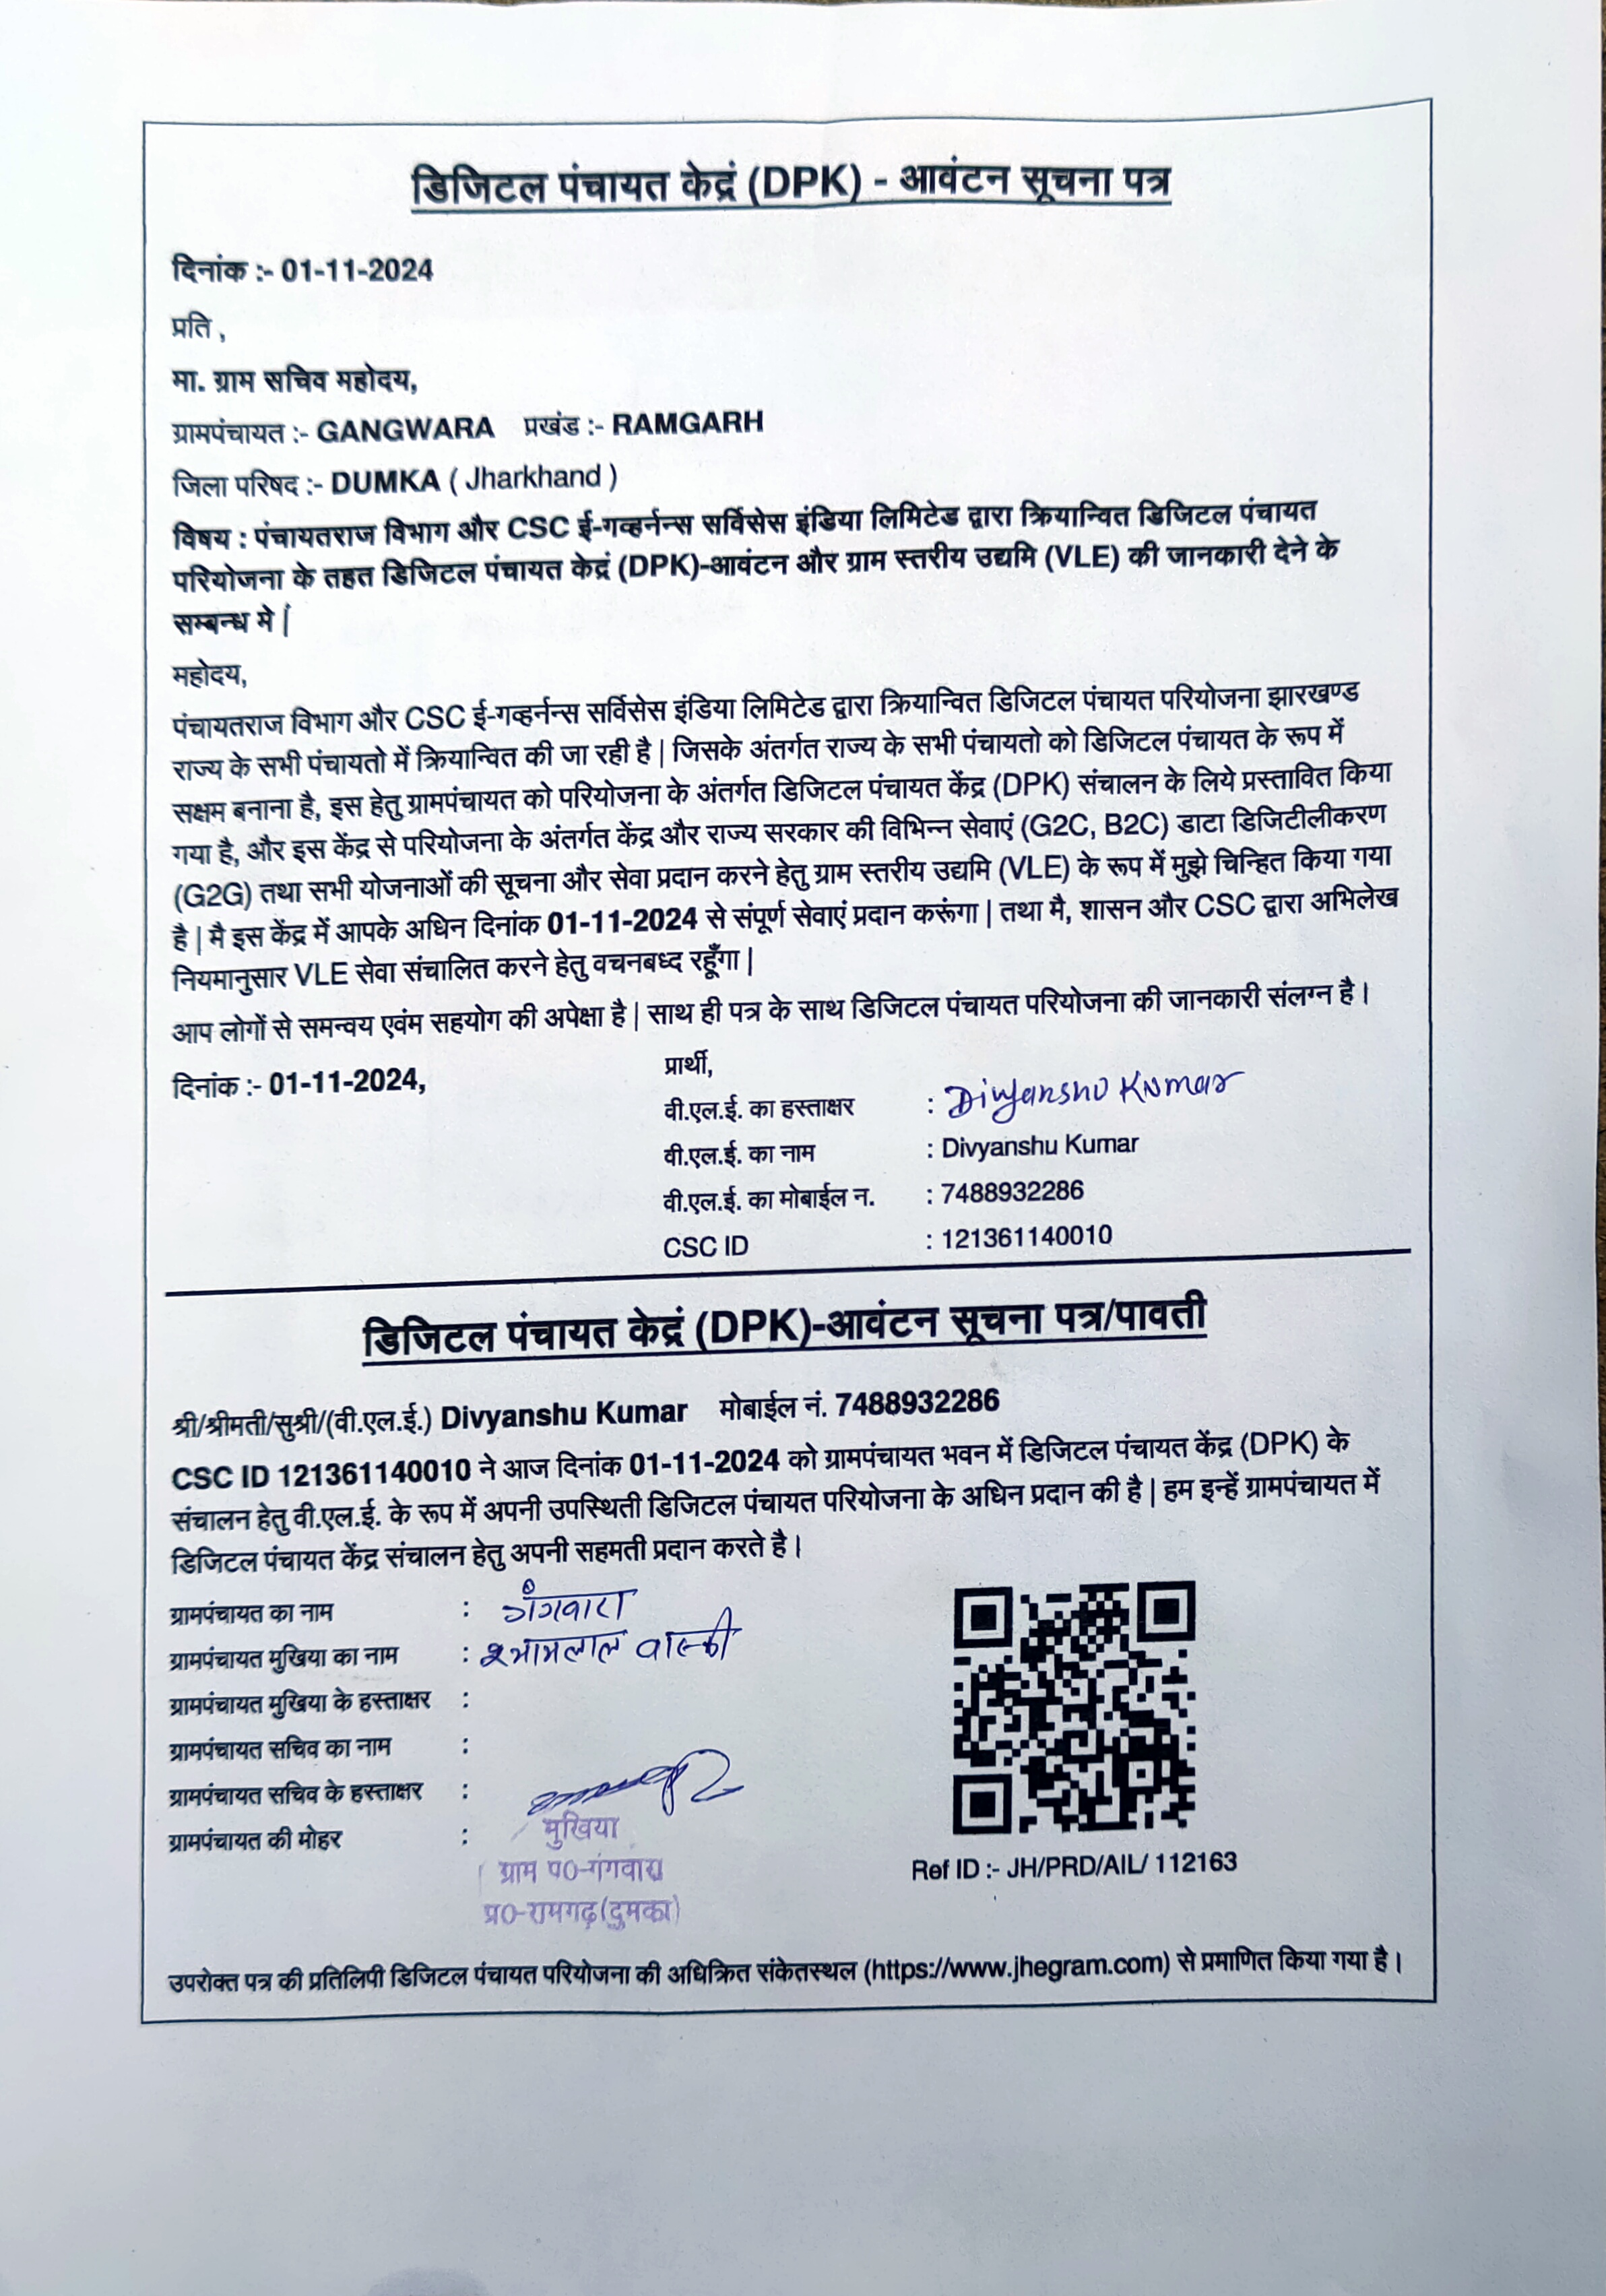 डिजिटल पंचायत केद्रं (DPK) - आवंटन सूचना पत्र
दिनांक :- 01-11-2024
प्रति ,
मा. ग्राम सचिव महोदय,
ग्रामपंचायत :- GANGWARA प्रखंड :- RAMGARH
जिला परिषद :- DUMKA ( Jharkhand )
विषय : पंचायतराज विभाग और CSC ई-गव्हर्नन्स सर्विसेस इंडिया लिमिटेड द्वारा क्रियान्वित डिजिटल पंचायत
परियोजना के तहत डिजिटल पंचायत केद्रं (DPK)-आवंटन और ग्राम स्तरीय उद्यमि (VLE) की जानकारी देने के
सम्बन्ध मे |
महोदय,
पंचायतराज विभाग और CSC ई-गव्हर्नन्स सर्विसेस इंडिया लिमिटेड द्वारा क्रियान्वित डिजिटल पंचायत परियोजना झारखण्ड
राज्य के सभी पंचायतो में क्रियान्वित की जा रही है | जिसके अंतर्गत राज्य के सभी पंचायतो को डिजिटल पंचायत के रूप में
सक्षम बनाना है, इस हेतु ग्रामपंचायत को परियोजना के अंतर्गत डिजिटल पंचायत केंद्र (DPK) संचालन के लिये प्रस्तावित किया
गया है, और इस केंद्र से परियोजना के अंतर्गत केंद्र और राज्य सरकार की विभिन्न सेवाएं (G2C, B2C) डाटा डिजिटीलीकरण
(G2G) तथा सभी योजनाओं की सूचना और सेवा प्रदान करने हेतु ग्राम स्तरीय उद्यमि (VLE) के रूप में मुझे चिन्हित किया गया
है | मै इस केंद्र में आपके अधिन दिनांक 01-11-2024 से संपूर्ण सेवाएं प्रदान करूंगा | तथा मै, शासन और CSC द्वारा अभिलेख
नियमानुसार VLE सेवा संचालित करने हेतु वचनबध्द रहूँगा |
आप लोगों से समन्वय एवंम सहयोग की अपेक्षा है | साथ ही पत्र के साथ डिजिटल पंचायत परियोजना की जानकारी संलग्न है।
दिनांक :- 01-11-2024,
प्रार्थी,
वी.एल.ई. का हस्ताक्षर : Divyanshu Kumar
वी.एल.ई. का नाम : Divyanshu Kumar
वी.एल.ई. का मोबाईल न. : 7488932286
CSC ID : 121361140010
डिजिटल पंचायत केद्रं (DPK)-आवंटन सूचना पत्र/पावती
श्री/श्रीमती/सुश्री/(वी.एल.ई.) Divyanshu Kumar मोबाईल नं. 7488932286
CSC ID 121361140010 ने आज दिनांक 01-11-2024 को ग्रामपंचायत भवन में डिजिटल पंचायत केंद्र (DPK) के
संचालन हेतु वी.एल.ई. के रूप में अपनी उपस्थिती डिजिटल पंचायत परियोजना के अधिन प्रदान की है | हम इन्हें ग्रामपंचायत में
डिजिटल पंचायत केंद्र संचालन हेतु अपनी सहमती प्रदान करते है।
ग्रामपंचायत का नाम : गंगवारा
ग्रामपंचायत मुखिया का नाम : श्यामलाल वास्की
ग्रामपंचायत मुखिया के हस्ताक्षर :
ग्रामपंचायत सचिव का नाम :
ग्रामपंचायत सचिव के हस्ताक्षर :
ग्रामपंचायत की मोहर :
मुखिया
ग्राम प०-गंगवारा
प्र०-रामगढ़(दुमका)
Ref ID :- JH/PRD/AIL/ 112163
उपरोक्त पत्र की प्रतिलिपी डिजिटल पंचायत परियोजना की अधिक्रित संकेतस्थल (https://www.jhegram.com) से प्रमाणित किया गया है।